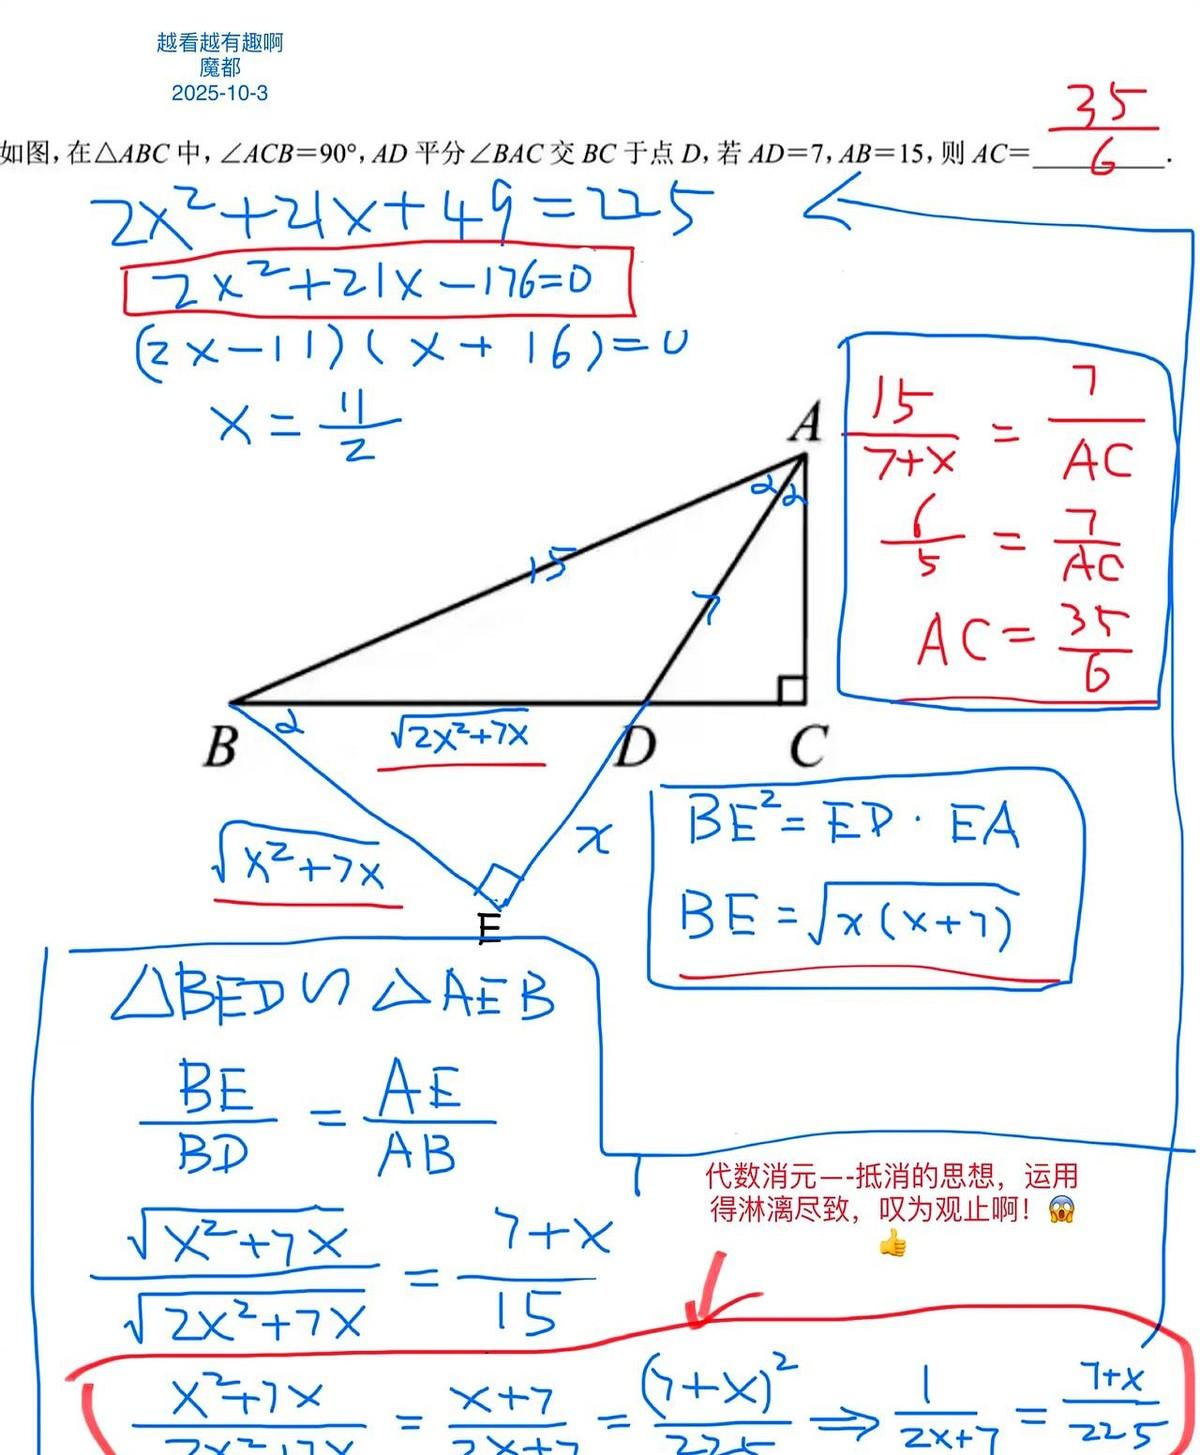 越看越有趣啊
魔都
2025-10-3
如图,在△ABC中,∠ACB=90°,AD平分∠BAC交BC于点D,若AD=7,AB=15,则AC=35/6.
2x²+21x+49=225
2x²+21x-176=0
(2x-11)(x+16)=0
x=11/2
15/(7+x)=7/AC
6/5=7/AC
AC=35/6
A
α α
15
7
B
α
√(2x²+7x)
D
C
√(x²+7x)
x
E
BE²=ED·EA
BE=√(x(x+7))
△BED∽△AEB
BE/BD=AE/AB
√(x²+7x)/√(2x²+7x)=(7+x)/15
代数消元—-抵消的思想,运用
得淋漓尽致,叹为观止啊!😱
👍
(x²+7x)/(2x²+7x)=(x+7)/(2x+7)=(7+x)²/225⇒1/(2x+7)=(7+x)/225